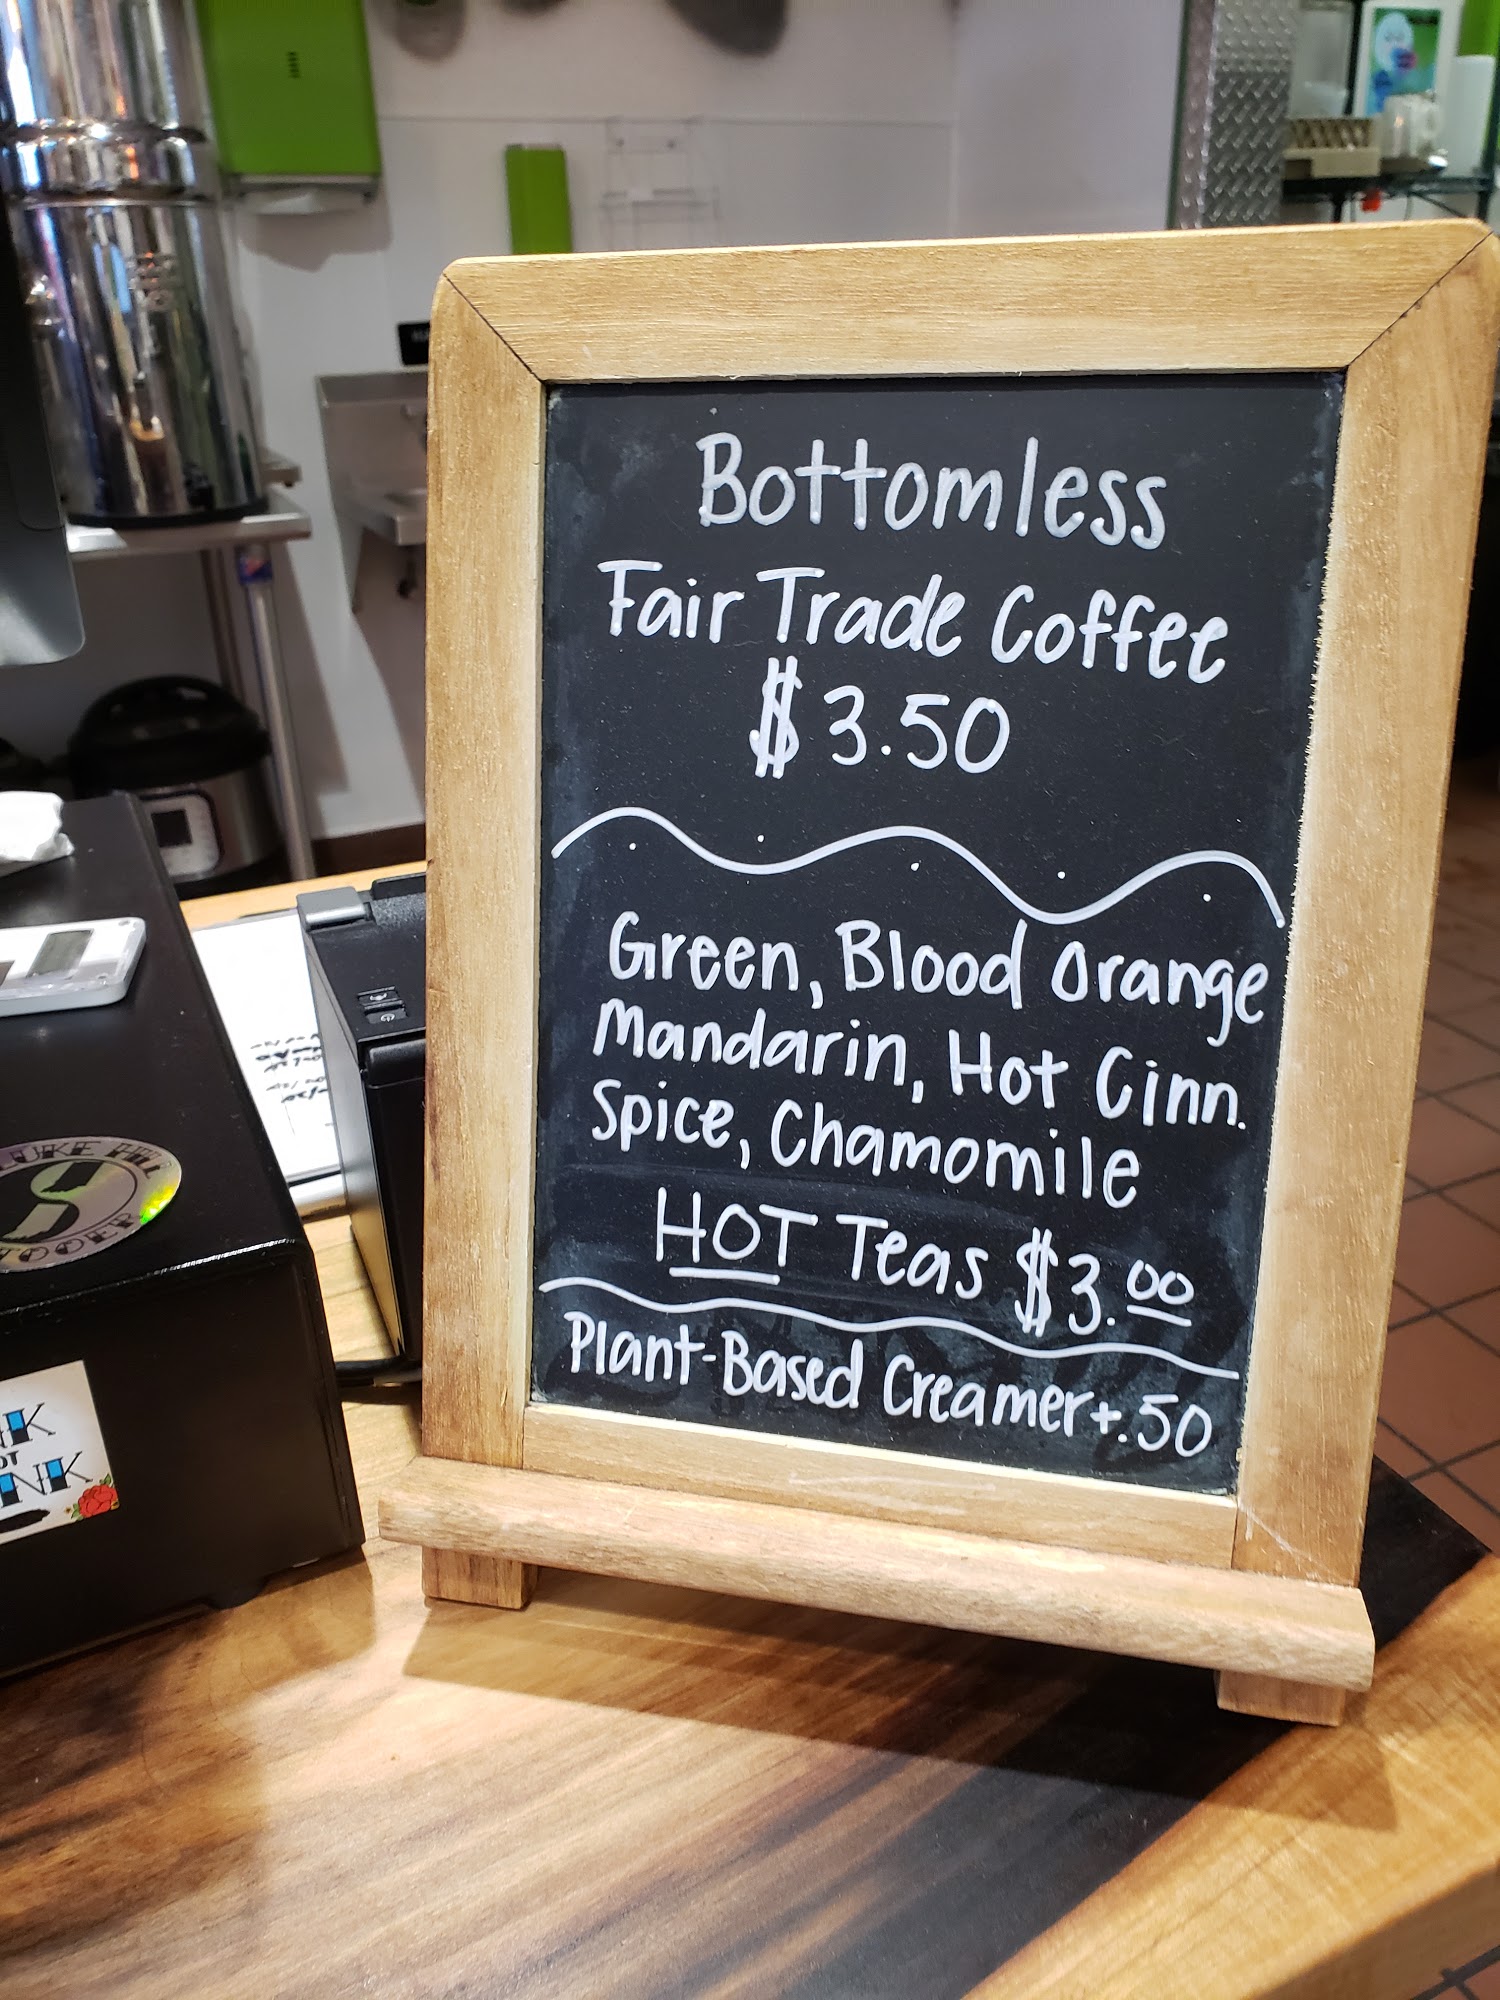 Bottomless
Fair Trade Coffee
$3.50
Green, Blood Orange
Mandarin, Hot Cinn.
Spice, Chamomile
HOT Teas $3.00
Plant-Based Creamer+.50